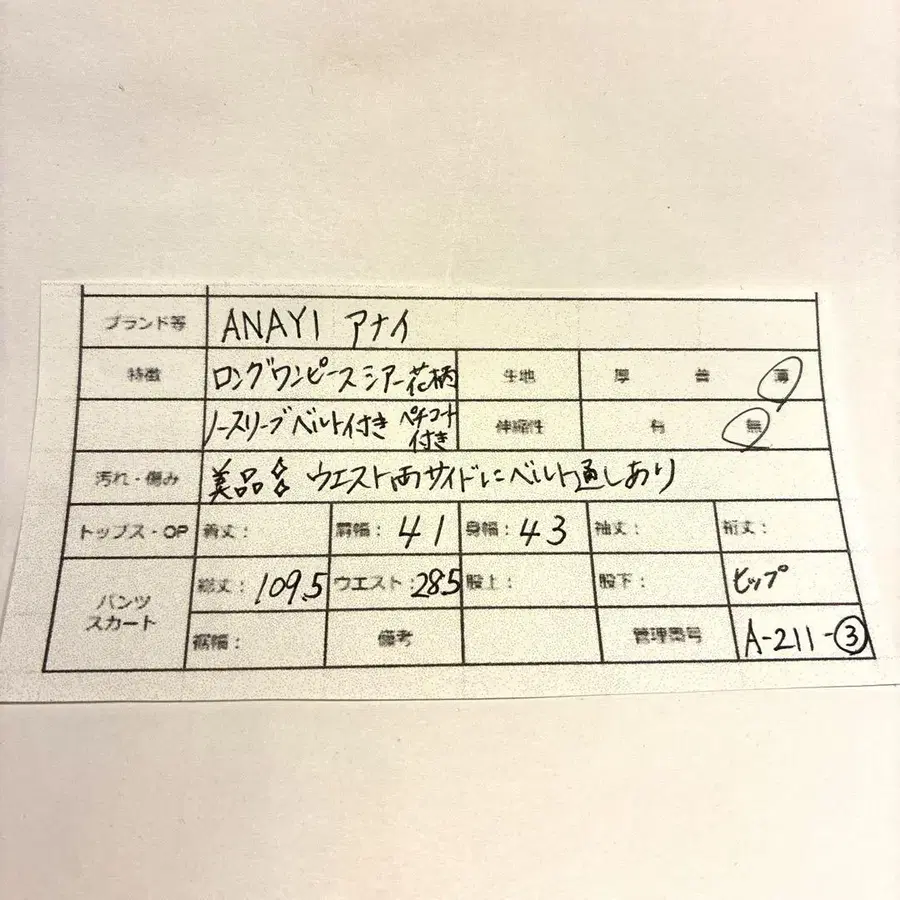 ブランド等 ANAYI アナイ
特徴 ロングワンピース シアー花柄 生地 厚 普 薄
ノースリーブ ベルト付き ペチコート付き 伸縮性 有 無
汚れ・傷み 美品 ウエスト両サイドにベルト通しあり
トップス・OP 着丈: 肩幅: 41 身幅: 43 袖丈: 裄丈:
パンツ スカート 総丈: 109.5 ウエスト: 28.5 股上: 股下: ヒップ
裾幅: 備考 管理番号 A-211-③